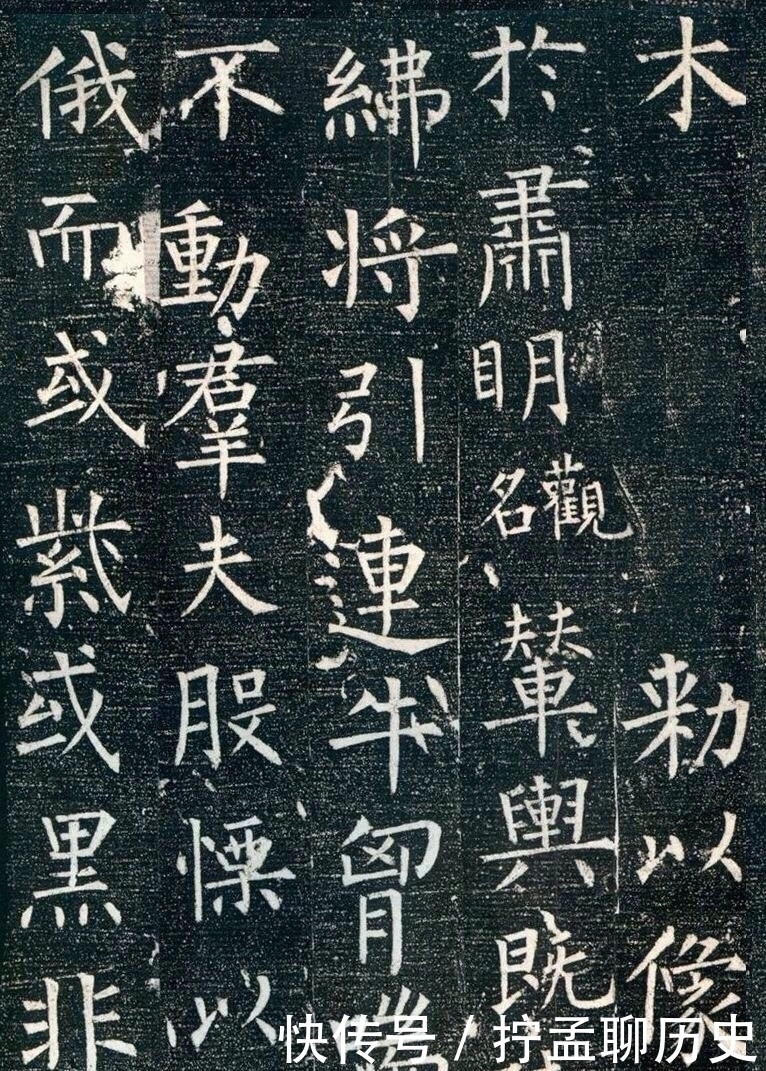 木 勑以像
於肅明觀名輦輿既
紼將引連牛胷
不動羣夫股慄以
俄而或紫或黑非
快传号 / 拧孟聊历史